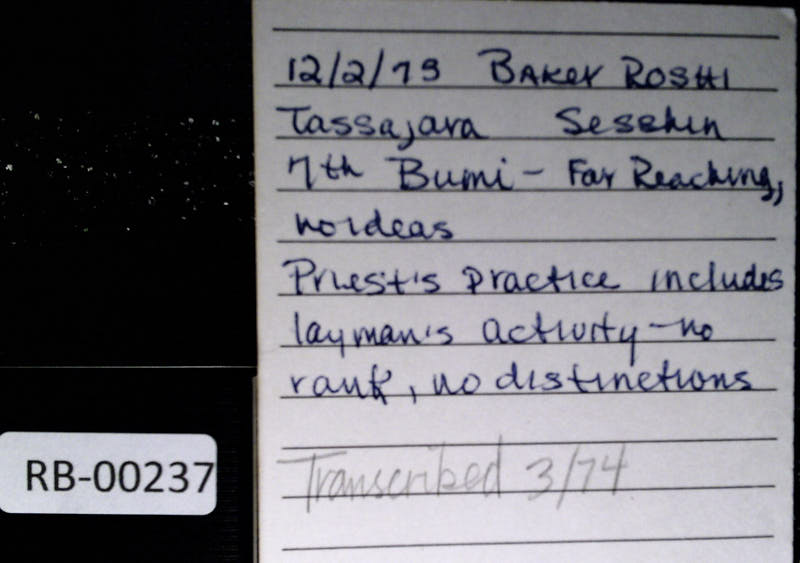 12/2/73 Baker Roshi
Tassajara Sesshin
7th Bumi - Far Reaching,
no ideas
Priest's practice includes
layman's activity - no
rank, no distinctions
Transcribed 3/74
RB-00237